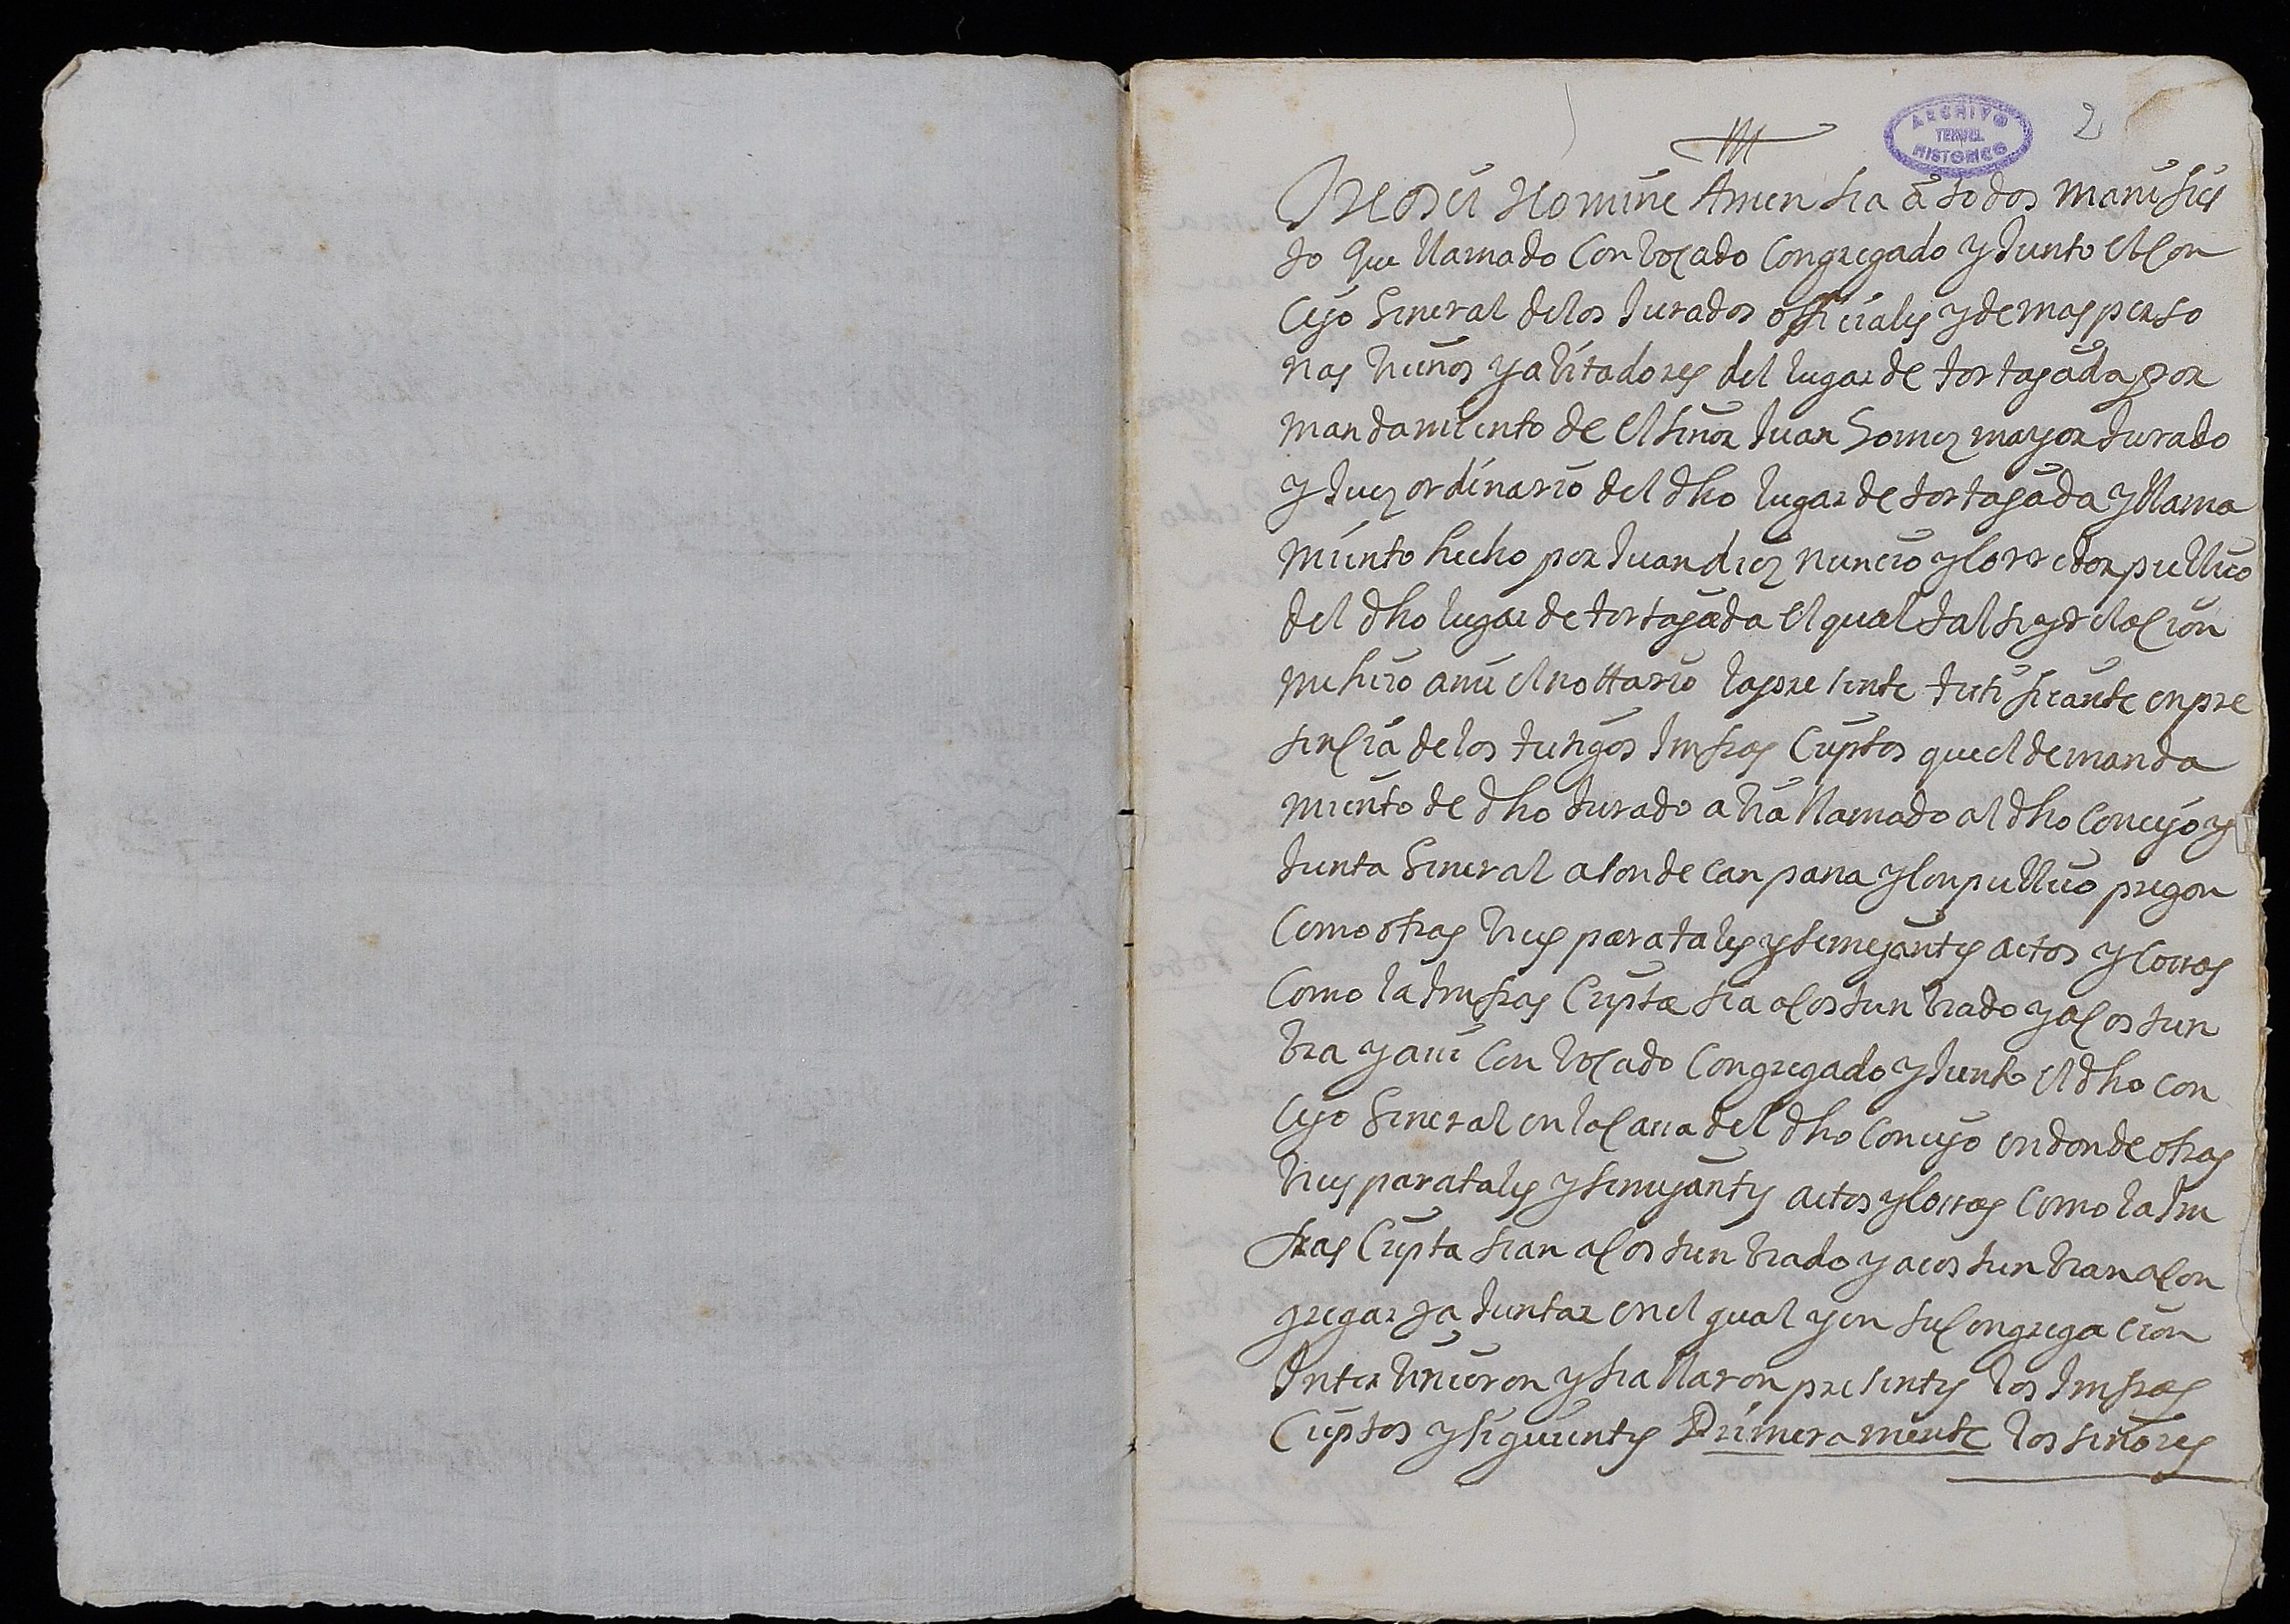 2
ARCHIVO
TERUEL
HISTORICO
In Dei Nomine Amen sia a todos manifies
to que llamado Conbocado Congregado y Junto el Con
cejo General de los Jurados officiales y demas perso
nas vecinos y abitadores del lugar de tortajada por
mandamiento de el señor Juan Gomez mayor Jurado
y Juez ordinario del dho lugar de tortajada y llama
miento hecho por Juan diez nuncio y Corredor publico
del dho lugar de tortajada el qual tal fe y relacion
me hizo a mi el nottario la presente testificante en pre
sencia de los testigos Infras Criptos que el de manda
miento de dho Jurado abia llamado al dho Concejo y
Junta General a son de canpana y Con publico pregon
Como otras veces para tales y semejantes actos y Cossas
Como la Infras Cripta sia acostunbrado y acostun
bra y assi Conbocado Congregado y Junto el dho con
cejo General en la Cassa del dho Concejo en donde otras
veces para tales y semejantes actos y Cossas Como la In
fras Cripta sian acostunbrado y acostunbran a Con
gregar y a Juntar en el qual y en su Congregacion
Interbinieron y sia llaron presentes los Infras
Criptos y siguientes Primeramente los señores